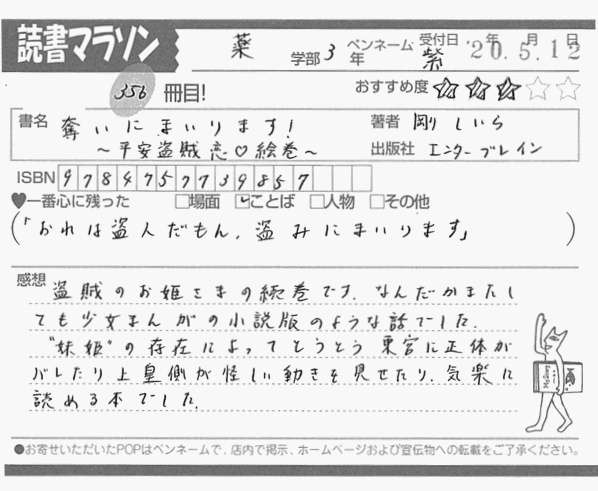 読書マラソン
薬 学部 3 年 ペンネーム 紫 受付日 20.年5.月12日
356 冊目!
おすすめ度 ★★★☆☆
書名 奪いにまいります!
～平安盗賊恋♡絵巻～
著者 剛しいら
出版社 エンターブレイン
ISBN 9784757739857
♥一番心に残った □場面 ☑ことば □人物 □その他
(「おれは盗人だもん、盗みにまいります」)
感想 盗賊のお姫さまの続巻です。なんだかまたし
ても少女まんがの小説版のような話でした。
"妹姫"の存在によってとうとう東宮に正体が
バレたり上皇側が怪しい動きを見せたり、気楽に
読める本でした。
●お寄せいただいたPOPはペンネームで、店内で掲示、ホームページおよび宣伝物への転載をご了承ください。